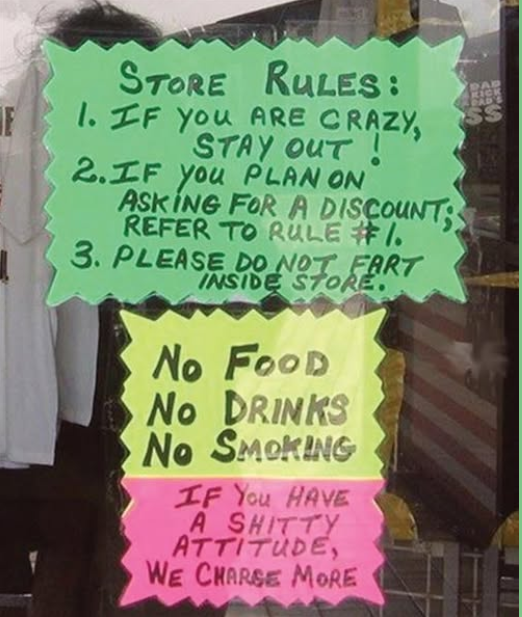 STORE RULES:
1. IF YOU ARE CRAZY,
STAY OUT!
2. IF YOU PLAN ON
ASKING FOR A DISCOUNT;
REFER TO RULE #1.
3. PLEASE DO NOT FART
INSIDE STORE.
NO FOOD
NO DRINKS
NO SMOKING
IF YOU HAVE
A SHITTY
ATTITUDE,
WE CHARGE MORE